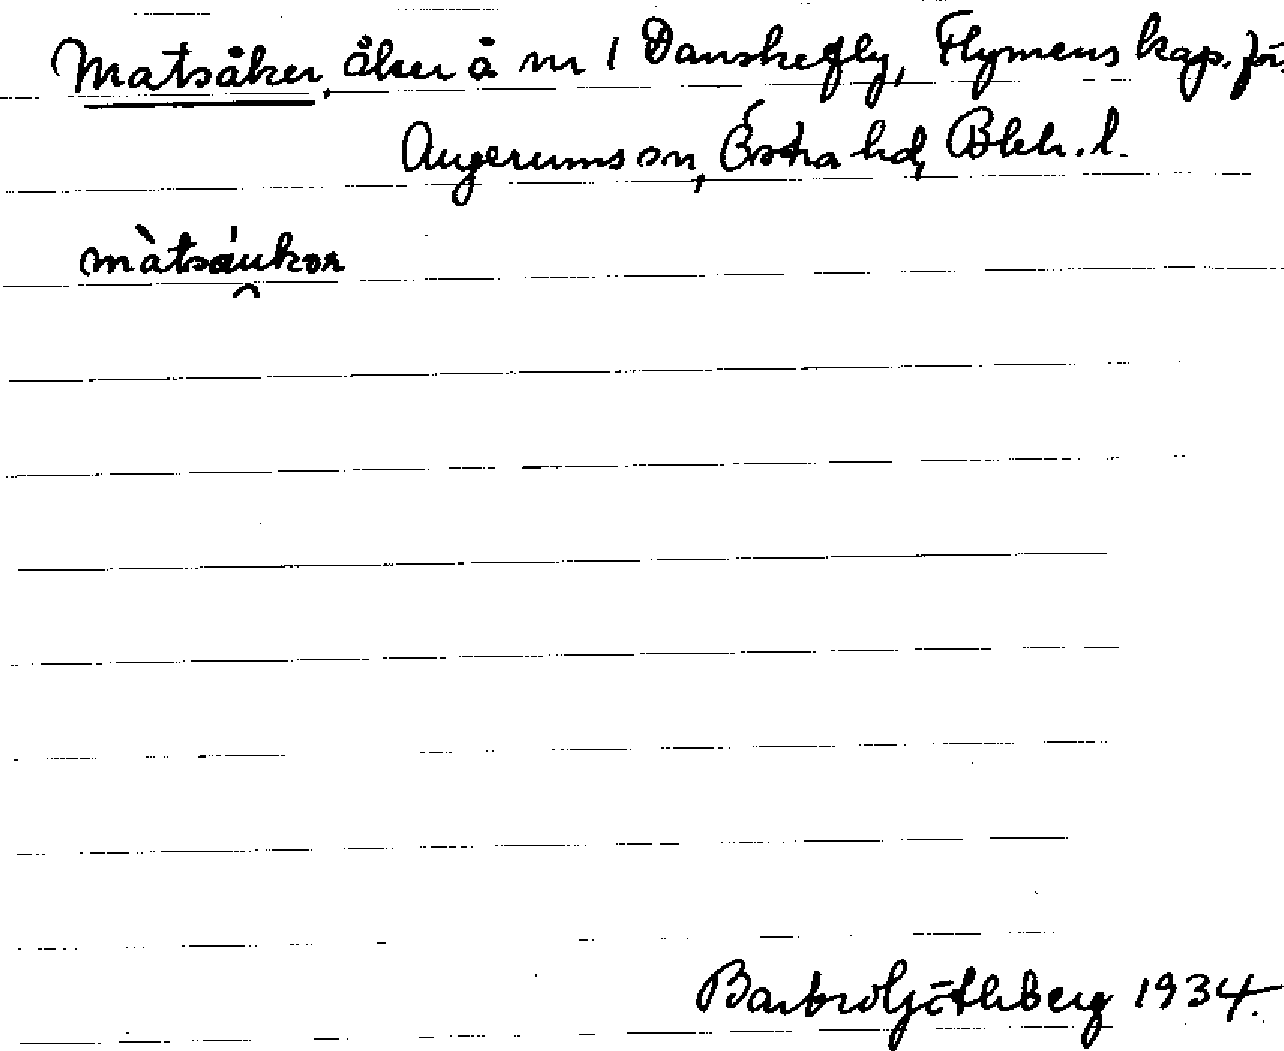 Matsåker, åker å nr 1 Danskefly, Flymens kap. för.
Augerums sn, Östra hd, Blek. l.
màtsáukər
Barbro Götheberg 1934.